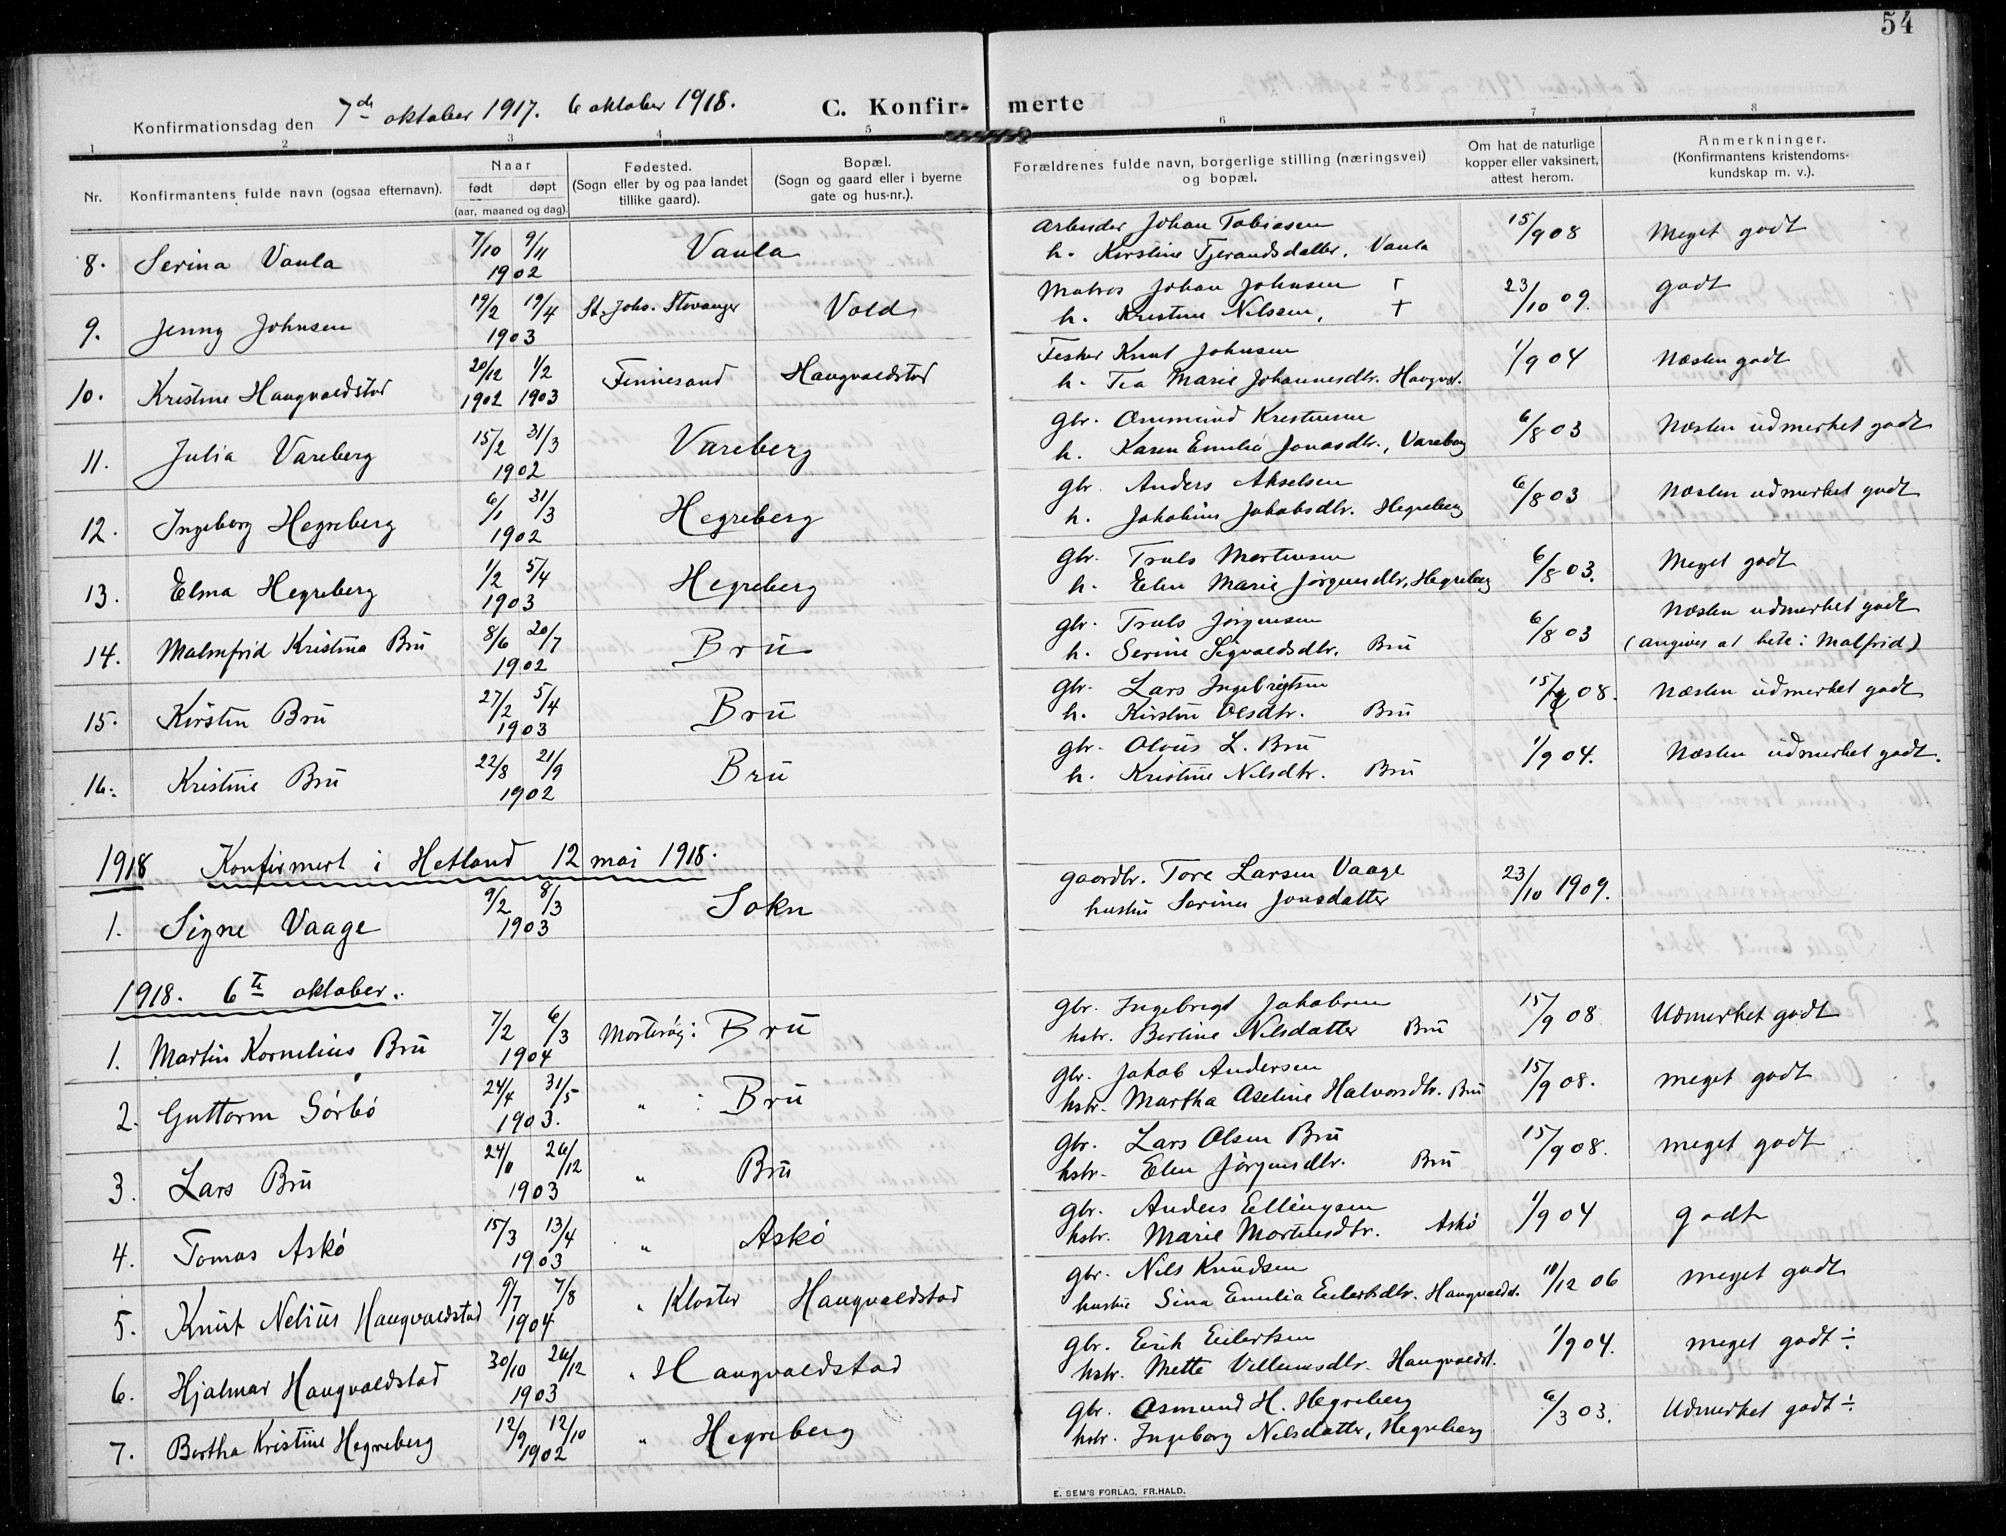 54
Konfirmationsdag den 7de oktober 1917. 6 oktober 1918. C. Konfirmerte
1 2 3 4 5 6 7 8
Nr. Konfirmantens fulde navn (ogsaa efternavn). Naar født døpt (aar, maaned og dag). Fødested. (Sogn eller by og paa landet tillike gaard). Bopæl. (Sogn og gaard eller i byerne gate og hus-nr.). Forældrenes fulde navn, borgerlige stilling (næringsvei) og bopæl. Om hat de naturlige kopper eller vaksinert, attest herom. Anmerkninger. (Konfirmantens kristendomskundskap m. v.).
8. Serina Vaula 7/10 9/11 1902 Vaula Arbeider Johan Tobiasen 15/9 08 Meget godt
h. Kirstine Tjerandsdatter, Vaula
9. Jenny Johnsen 19/2 19/4 1903 St. Johs. Stavanger Vold Matros Johan Johnsen † 23/10 09. godt
h. Kristine Nilsen, †
10. Kristine Haugvaldstad 20/12 1902 1/2 1903 Finnesand Haugvaldstad Fisker Knut Johnsen 1/9 04 Næsten godt
h. Tea Marie Johannesdtr. Haugvst.
11. Julia Vareberg 15/2 31/3 1902 Vareberg Gbr. Ommund Kristensen 6/8 03 Næsten udmerket godt
h. Karen Emilie Jonasdtr., Vareberg
12. Ingeborg Hegreberg 6/1 31/3 1902 Hegreberg Gbr. Anders Akselsen 6/8 03 Næsten udmerket godt
h. Jakobine Jakobsdtr. Hegreberg
13. Elma Hegreberg 1/2 5/4 1903 Hegreberg Gbr. Truls Mortensen 6/8 03. Meget godt
h. Elen Marie Jørgensdtr, Hegreberg
14. Malmfrid Kristina Bru 8/6 20/7 1902 Bru Gbr. Truls Jørgensen 6/8 03 Næsten udmerket godt
h. Serine Sigvaldsdtr. Bru (angives at hete: Malfrid)
15. Kirsten Bru 27/2 5/4 1903 Bru Gbr. Lars Ingebrigtsen 15/9 08. Næsten udmerket godt
h. Kirstine Olsdtr. Bru
16. Kristine Bru 22/8 21/9 1902 Bru Gbr. Olous L. Bru 1/9 04. Næsten udmerket godt.
h. Kristine Nilsdtr. Bru
1918 Konfirmert i Hetland 12 mai 1918.
1. Signe Vaage 9/2 8/3 1903 Sokn gaardbr. Tore Larsen Vaage 23/10 1909.
hustru Serine Jonsdatter
1918. 6te oktober.
1. Martin Kornelius Bru 7/2 6/3 1904 Mosterøy: Bru Gbr. Ingebrigt Jakobsen 15/9 08 Udmerket godt
hstr. Bertine Nilsdatter Bru
2. Guttorm Sørbø 24/4 31/5 1903. " : Bru Gbr. Jakob Andersen 15/9 08. meget godt
hstr. Martha Aseline Halvorsdtr. Bru
3. Lars Bru 24/11 26/12 1903 " Bru Gbr. Lars Olsen Bru 15/9 08. meget godt
hstr. Elen Jørgensdtr. Bru
4. Tomas Askø 15/3 13/4 1903 " Askø Gbr. Anders Ellingsen 1/9 04 godt
hstr. Marie Mortensdtr. Askø
5. Knut Nelius Haugvaldstad 9/7 7/8 1904 " Kloster Haugvaldstad Gbr. Nils Knudsen 18/12 06 meget godt
hustru Sina Emilia Eilertsdtr. Haugvaldst.
6. Hjalmar Haugvaldstad 30/10 26/12 1903 " Haugvaldstad Gbr. Erik Eilertsen 1/9 04. meget godt ÷
hstr. Mette Villumsdtr. Haugvaldst.
7. Bertha Kristine Hegreberg 12/9 12/10 1902 " Hegreberg Gbr. Osmund H. Hegreberg 6/3 03. Udmerket godt ÷
hstr. Ingeborg Nilsdatter, Hegreberg
E. SEM'S FORLAG, FR.HALD.